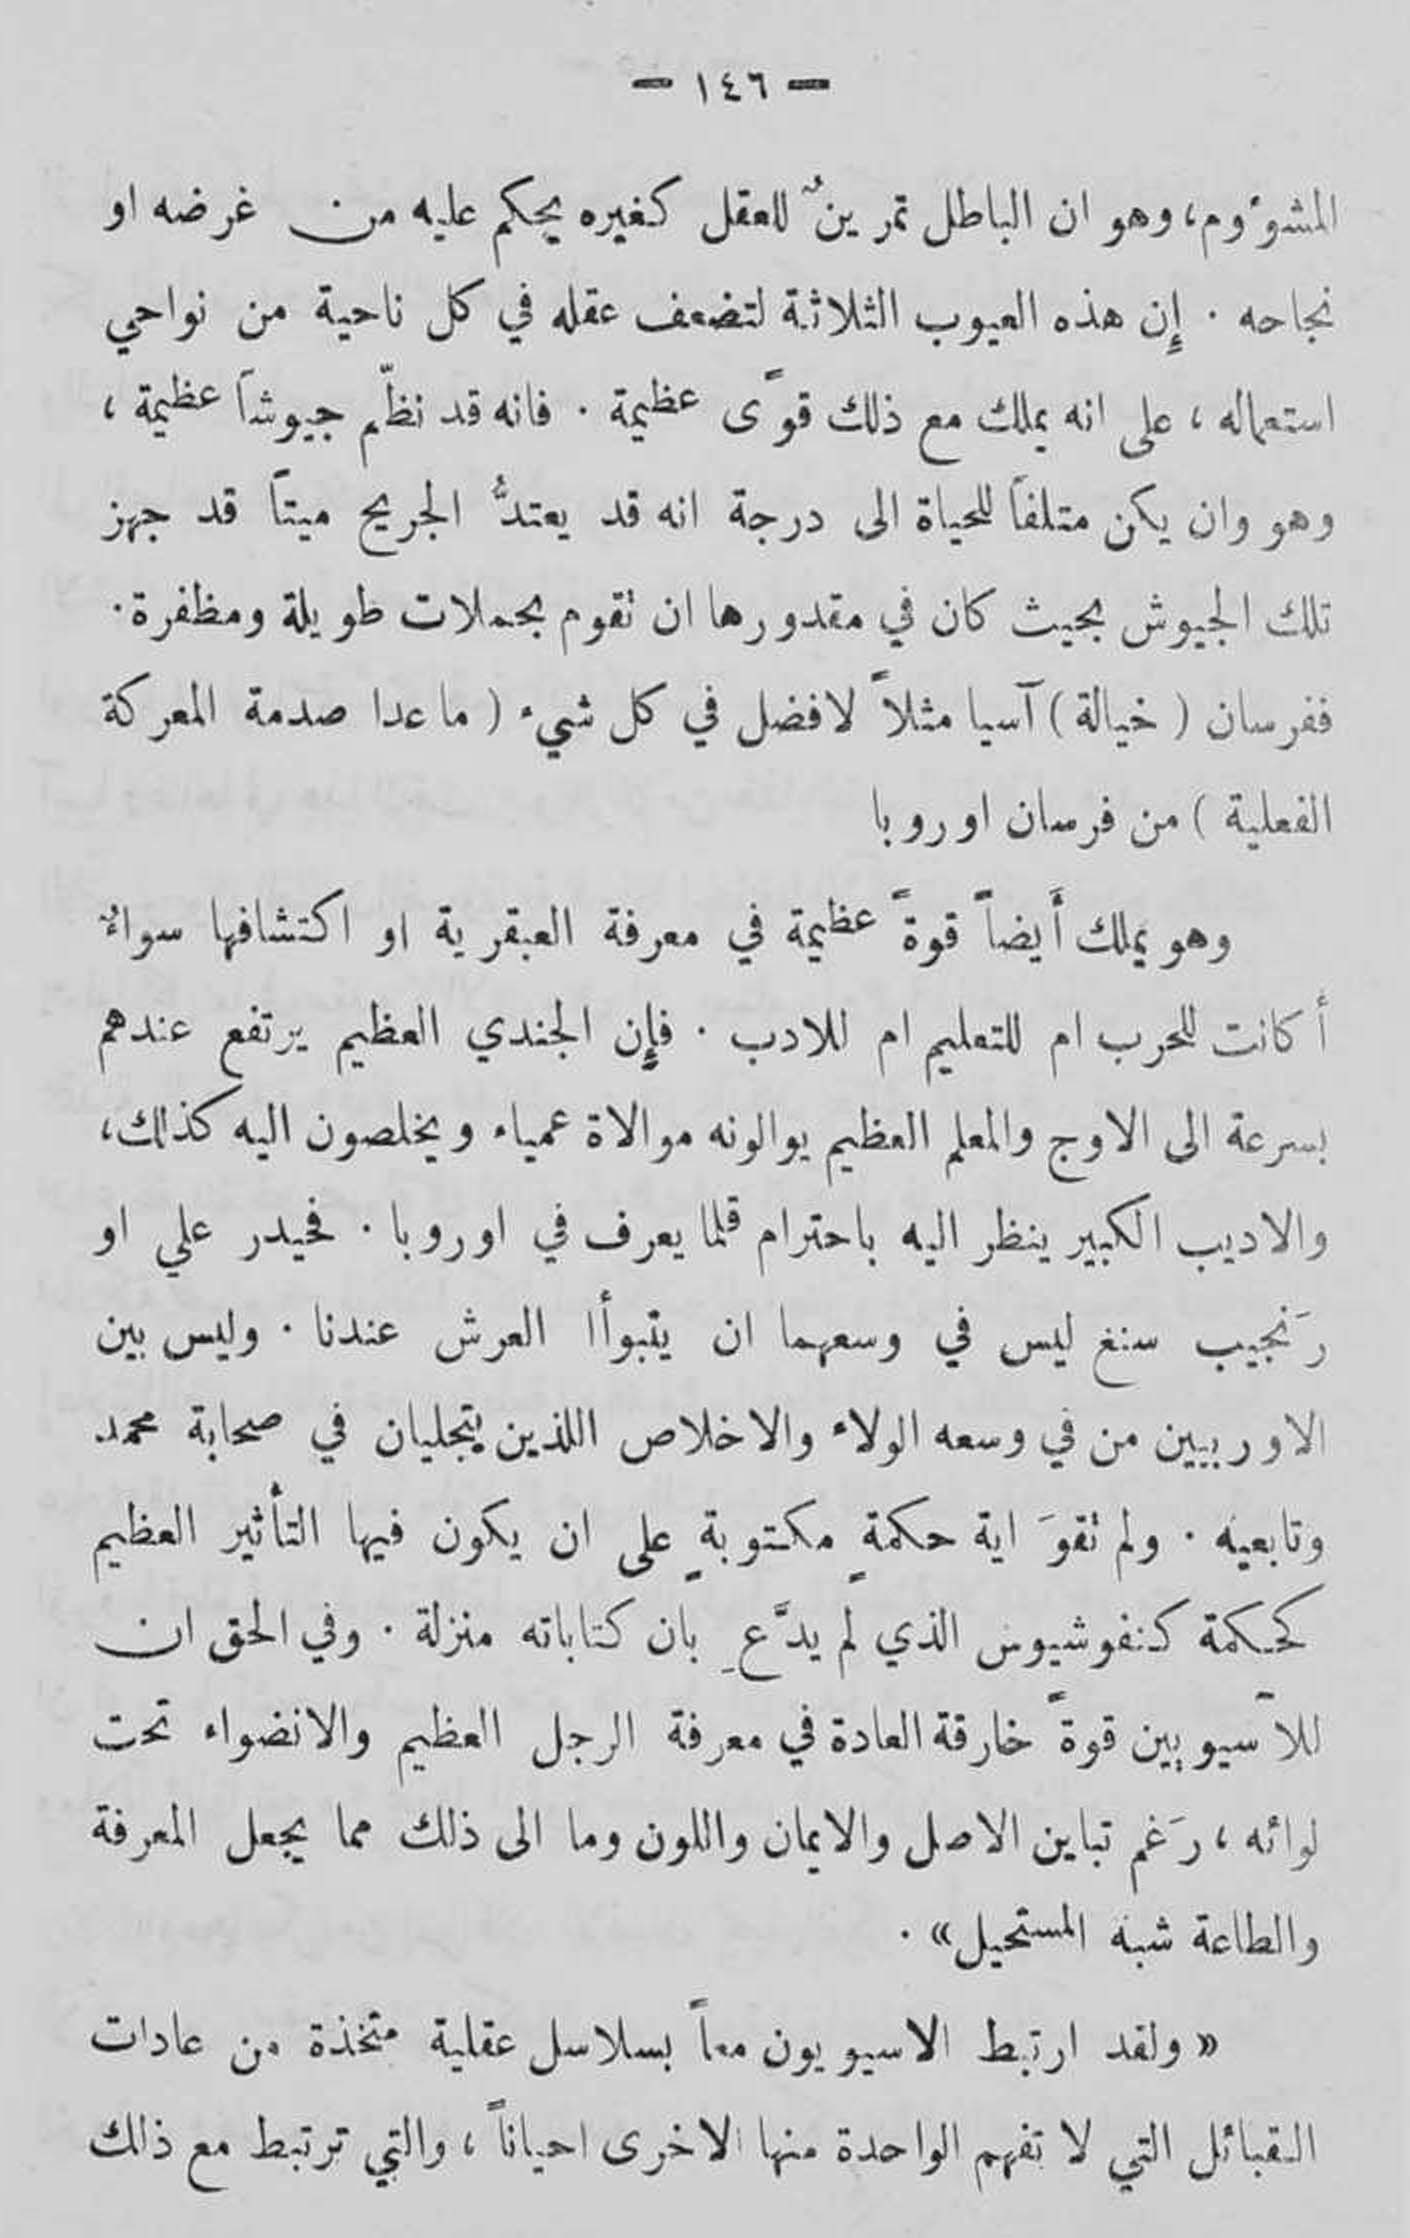 — ١٤٦ —
المشوؤم، وهو ان الباطل تمرينٌ للعقل كغيره يحكم عليه من غرضه او
نجاحه . إِن هذه العيوب الثلاثة لتضعف عقله في كل ناحية من نواحي
استعماله ، على انه يملك مع ذلك قوًى عظيمة . فانه قد نظّم جيوشاً عظيمة ،
وهو وان يكن متلفاً للحياة الى درجة انه قد يعتدُّ الجريح ميتاً قد جهز
تلك الجيوش بحيث كان في مقدورها ان تقوم بحملات طويلة ومظفرة .
ففرسان ( خيالة ) آسيا مثلاً لافضل في كل شيء ( ما عدا صدمة المعركة
الفعلية ) من فرسان اوروبا
وهو يملك أَيضاً قوةً عظيمة في معرفة العبقرية او اكتشافها سواءٌ
أكانت للحرب ام للتعليم ام للادب . فإِن الجندي العظيم يرتفع عندهم
بسرعة الى الاوج والمعلم العظيم يوالونه موالاة عمياء ويخلصون اليه كذلك،
والاديب الكبير ينظر اليه باحترام قلما يعرف في اوروبا . فحيدر علي او
رَنجيب سنغ ليس في وسعهما ان يتبوأا العرش عندنا . وليس بين
الاوربيين من في وسعه الولاء والاخلاص اللذين يتجليان في صحابة محمد
وتابعيه . ولم تقوَ اية حكمةٍ مكتوبةٍ على ان يكون فيها التأثير العظيم
كحكمة كنفوشيوس الذي لم يدَّعِ بان كتاباته منزلة . وفي الحق ان
للآسيويين قوةً خارقة العادة في معرفة الرجل العظيم والانضواء تحت
لوائه ، رَغم تباين الاصل والايمان واللون وما الى ذلك مما يجعل المعرفة
والطاعة شبه المستحيل» .
« ولقد ارتبط الاسيويون معاً بسلاسل عقلية متخذة من عادات
القبائل التي لا تفهم الواحدة منها الاخرى احياناً ، والتي ترتبط مع ذلك